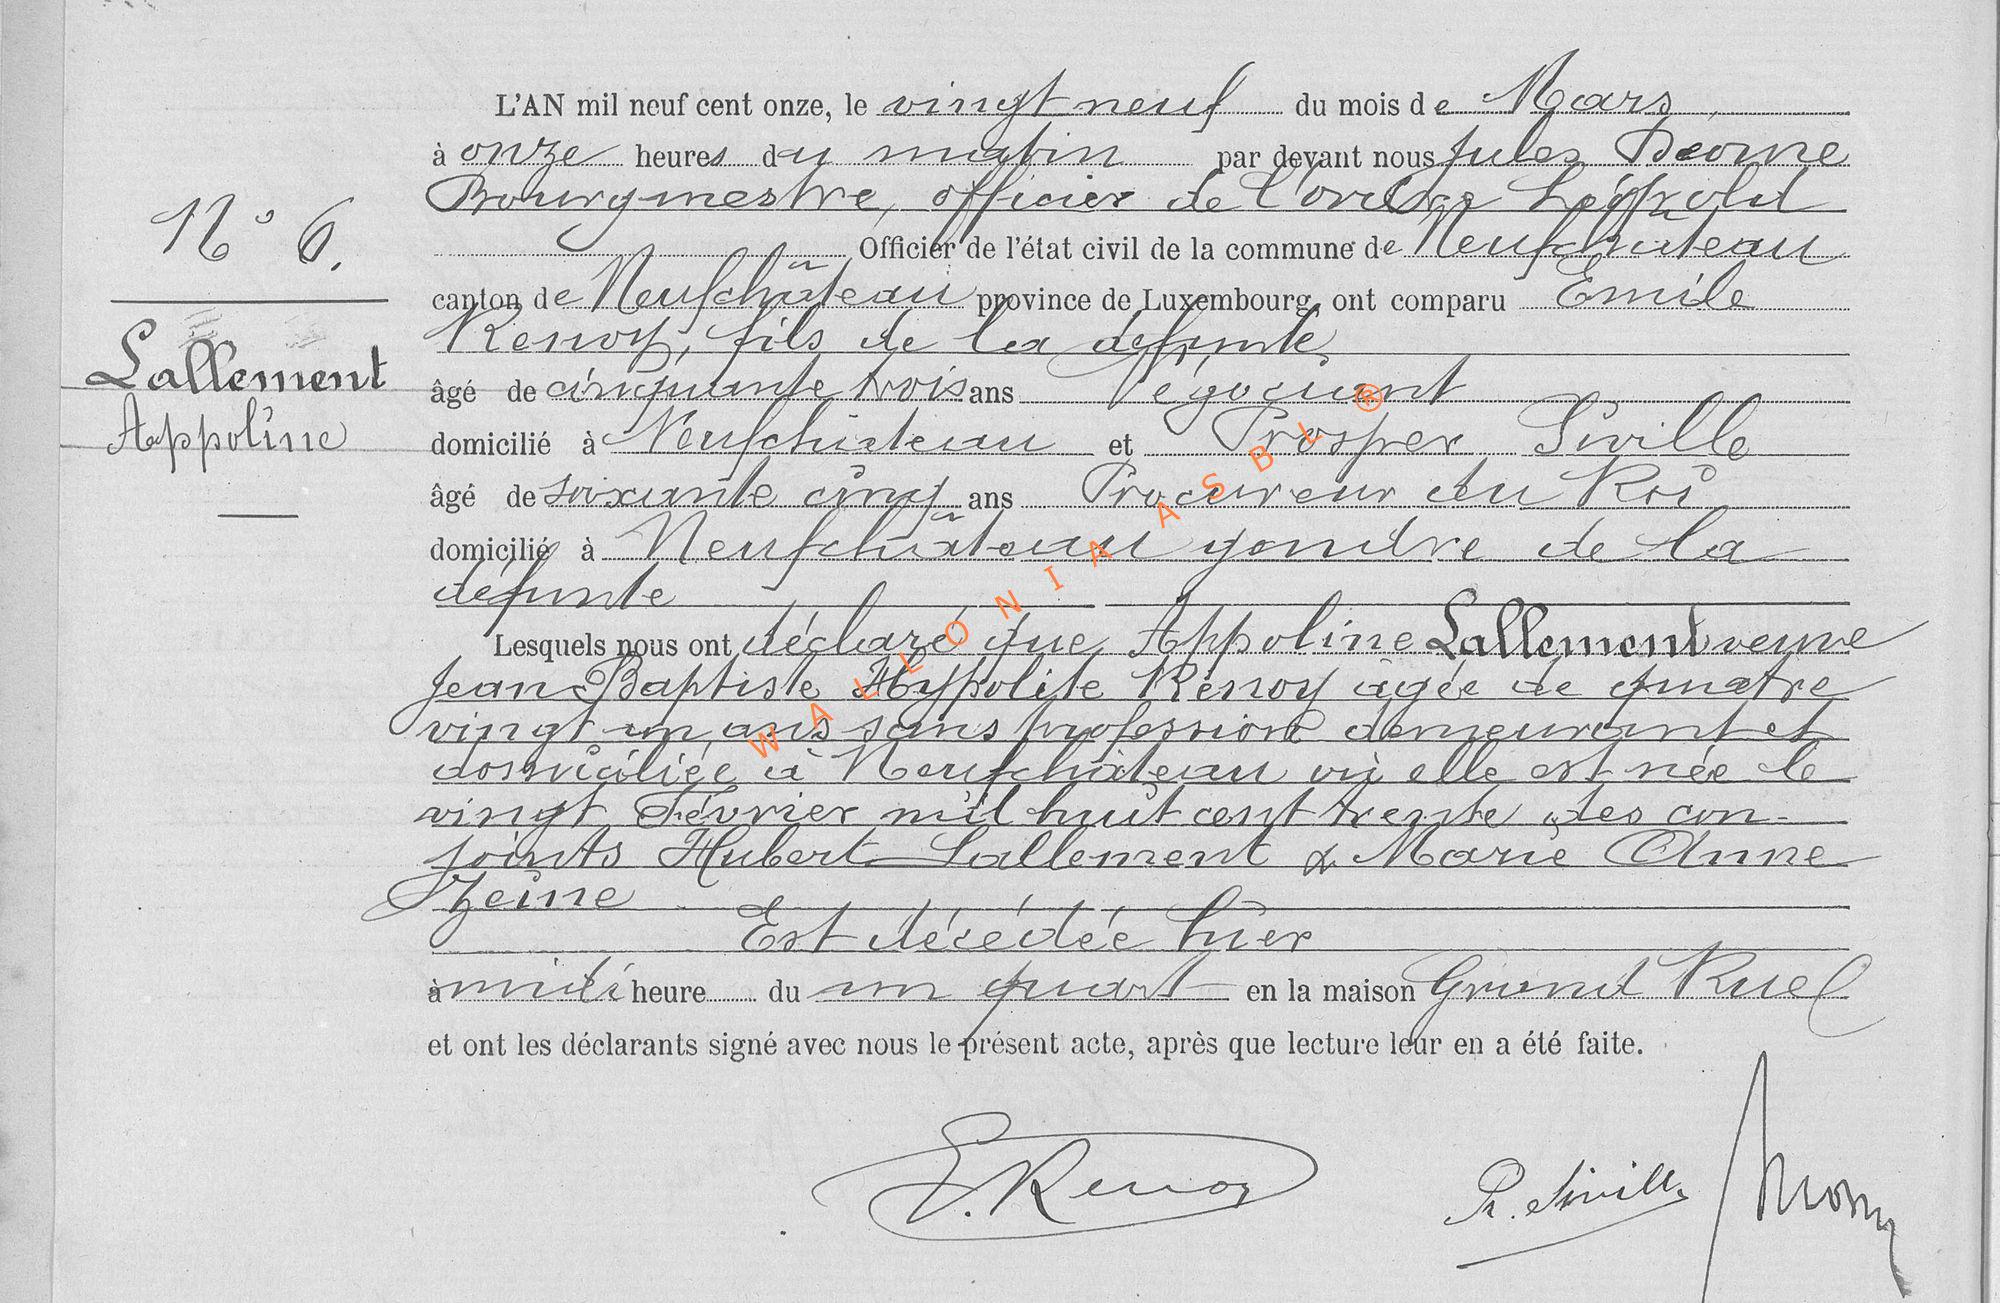 N° 6.
Lallement
Appoline
L'AN mil neuf cent onze, le vingt neuf du mois de Mars
à onze heures du matin par devant nous Jules
Bourgmestre, officier de l'ordre Léopold
Officier de l'état civil de la commune de Neufchâteau
canton de Neufchâteau province de Luxembourg, ont comparu Emile
Renoy, fils de la défunte
âgé de cinquante trois ans Négociant
domicilié à Neufchateau et Prosper Siville
âgé de soixante cinq ans Procureur du Roi
domicilié à Neufchâteau gendre de la
défunte
Lesquels nous ont déclaré que Appoline Lallement veuve
Jean Baptiste Hypolite Renoy âgée de quatre
vingt un ans sans profession demeurant et
domiciliée à Neufchâteau où elle est née le
vingt Février mil huit cent trente des con-
joints Hubert Lallement & Marie Anne
Zeine
Est décédée hier
à midi heure du un quart en la maison Grand Ruel
et ont les déclarants signé avec nous le présent acte, après que lecture leur en a été faite.
E. Renoy
Pr. Siville
WALLONIA ASBL ®